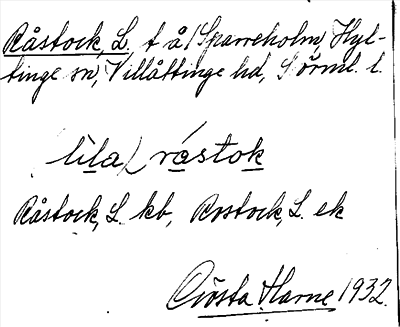 Råstock, L. t å/Sparreholm, Hyl-
tinge sn, Villåttinge hd, Sörml. l.
lila rástok
Råstock, L. kb, Rostock, L. ek
Gösta Harne 1932.